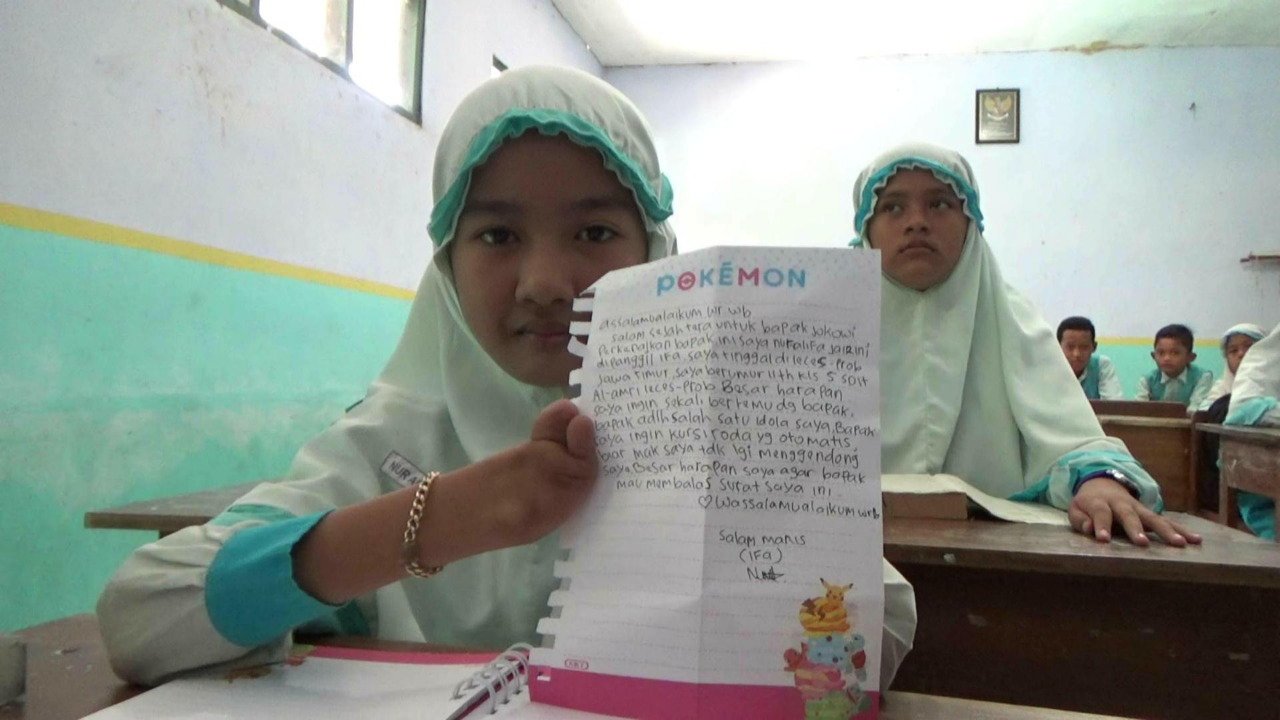 POKÉMON
assalamualaikum wr wb
salam sejahtera untuk bapak jokowi
Perkenalkan bapak ini saya nuralifa jaizini
dipanggil ifa saya tinggal di leces-prob
Jawa timur, saya berumur 11th kls 5 SDIT
Al-amri leces-prob Besar harapan
saya ingin sekali bertemu dg bapak,
bapak adlh salah satu idola saya, Bapak
saya ingin kursi roda yg otomatis
biar mak saya tdk lgi menggendong
saya. Besar harapan saya agar bapak
mau membalas surat saya ini
♡Wassalamualaikum wrb
Salam manis
(iFa)
NUR A